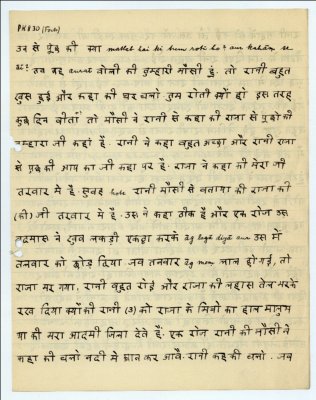 PH 830 (Fort)
उन से पूछ की क्या matlab hai ki tum roti ho? aur kahām se
āi? उन वह aurat बोली की तुम्हारी मौसी हुं. तो रानी बहुत
खुस हुई और कहा की घर चलो तुम रोती क्यों हो इस तरह
कुछ दिन बीतां तो मौसी ने रानी से कहा की राजा से पूछो की
तुम्हारा जी कहां है. रानी ने कहा बहुत अच्छा और रानी राजा
से पूछ की आप का जी कहा पर है. राजा ने कहा की मेरा जी
तरवार में है. सुबह hote रानी मौसी से बताया की राजा की
(की) जी तरवार में है. उस ने कहा ठीक है और एक रोज उस
बदमास ने खुब लकड़ी एकठ्ठा करके āg lagā diyā aur उस में
तलवार को छोड़ दिया जब तलवार āg mem लाल हो गई, तो
राजा मर गया. रानी बहुत रोई और राजा की लहास तेल भरके
रख दिया क्यों की रानी (३) को राजा के मित्रों का हाल मालुम
था की मरा आदमी जिला देते हैं. एक रोज रानी की मौसी ने
कहा की चलो नदी में स्नान कर आवें. रानी कह की चलो. जब